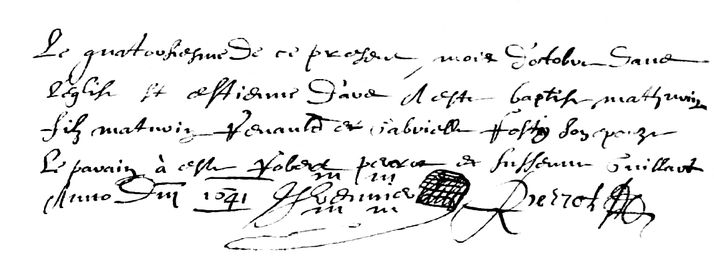 Le quatorsiesme de ce present mois d'octobre dans
l'eglise st estienne d'ave a este baptise mathurin
filz maturin Renauld et Gabrielle
Le parain à este Robert perrot et Guillaut
Anno Dni 1641 Pierrot